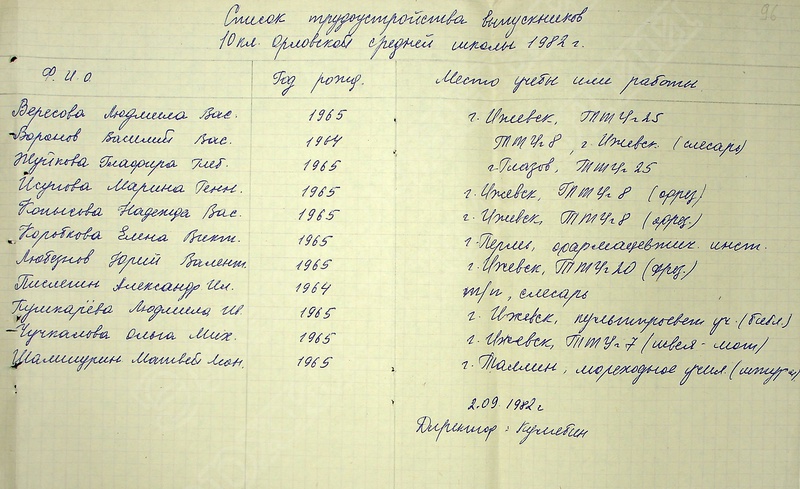 96
Список трудоустройства выпускников
10 кл. Орловской средней школы 1982 г.
Ф. И. О. Год рожд. Место учебы или работы
Вересова Людмила Вас. 1965 г. Ижевск, ТТУ-25
Воронов Василий Вас. 1964 ТТУ-8, г. Ижевск (слесарь)
Жуйкова Глафира Глеб. 1965 г. Глазов, ТТУ-25
Исупова Марина Генн. 1965 г. Ижевск, ГПТУ-8 (фрез)
Копысова Надежда Вас. 1965 г. Ижевск, ТТУ-8 (фрез.)
Коробкова Елена Викт. 1965 г. Пермь, фармацевтич. инст.
Любезнов Юрий Валент. 1965 г. Ижевск, ТТУ-20 (фрез.)
Пислегин Александр Ил. 1964 т/п, слесарь
Пушкарёва Людмила Ив. 1965 г. Ижевск, культпросвет уч. (библ)
Чучкалова Ольга Мих. 1965 г. Ижевск, ТТУ-7 (швея-мот)
Шалишурин Матвей 1965 г. Таллин, мореходное учил.
2.09.1982 г
Директор: Кулябин